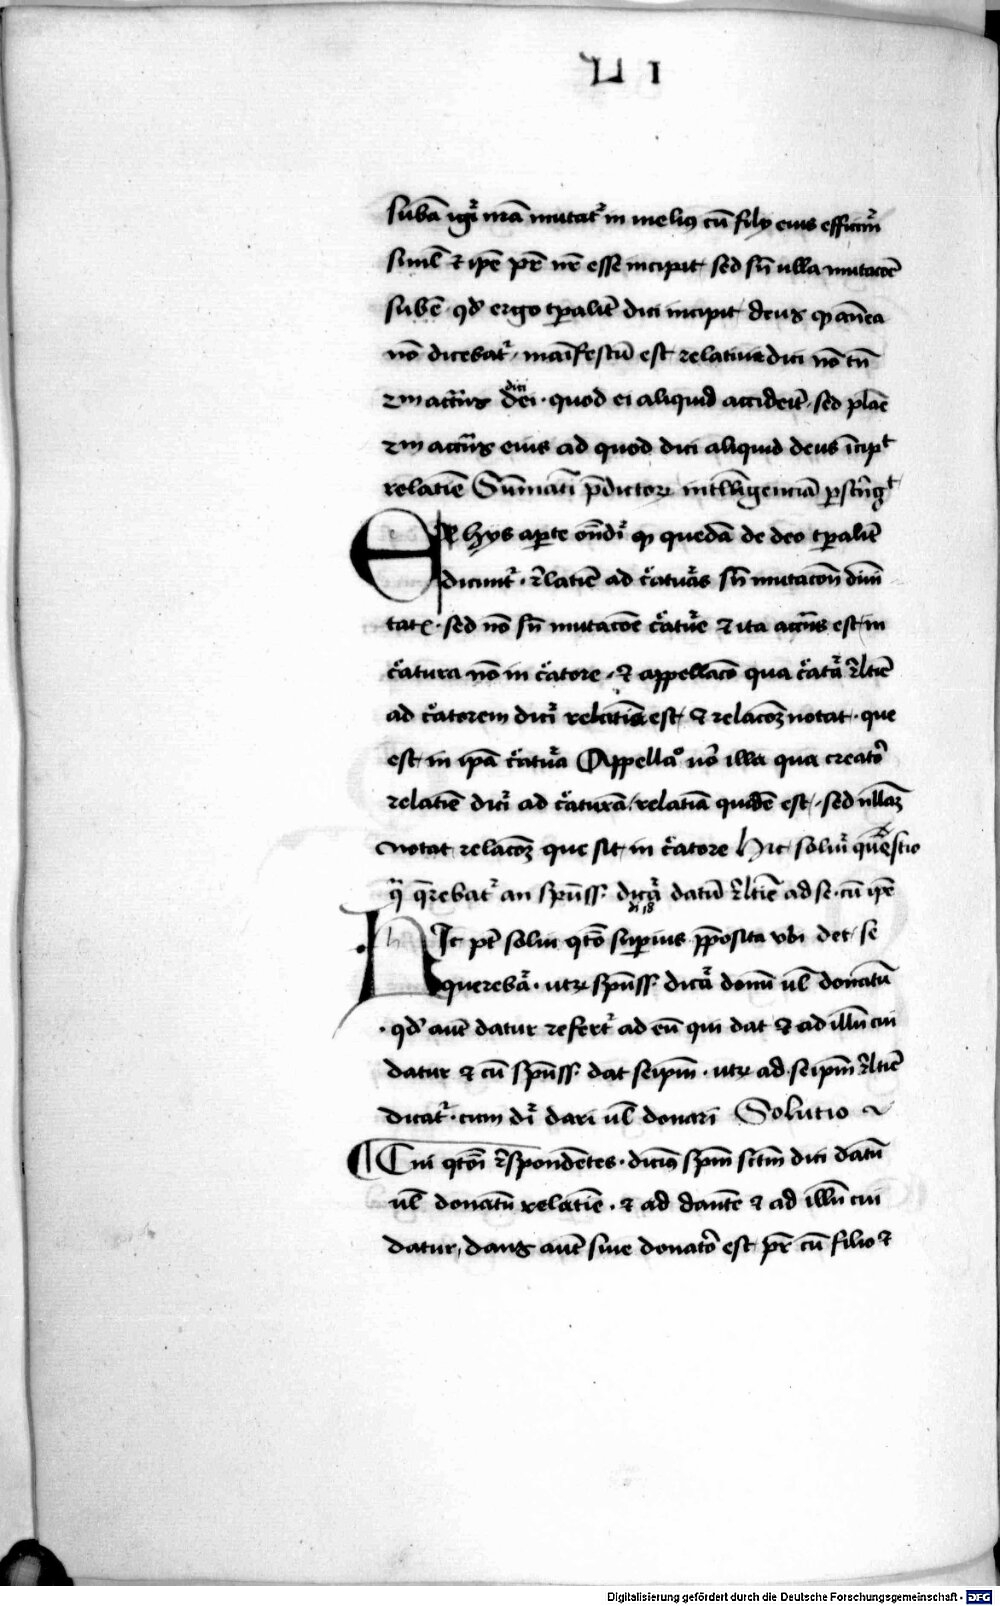 L I
subā igiͬ nrā mutatͬ in meliꝰ cū filij eius efficimͬ
simᷝ ⁊ ip̄e pͬ nr̄ esse incipit sed sñ ulla mutacōe
sube · qd' ergo tꝑalit̄ dici incipit deus qͥ antea
nō dicebatͬ, maīfestū est relatiue dici nō tn̄
2m accn̄s dei dici · quod ei aliquid acciderit, sed plane
2m accn̄s eius ad quod dici aliquid deus īcipᵗ
relatīe Sūmatī p̄dictoꝝ intll̄igenciā ꝑstrīgᵗ
EX hijs aꝑte on̄diͬ qͥ quedā de deo tꝑalit̄
dicuntͬ · rᷓlatīe ad cᷓatuᷓas sñ mutacōn diuī
tatꝭ · sed nō sñ mutacōe cᷓatuͬe ⁊ ita accn̄s est in
cᷓatura nō in cᷓatore · ⁊ appellacō qua cᷓatuᷓa rᷓltīe
ad cᷓatorem diciͬ relatiua est ⁊ relacōꝫ notat · que
est in ip̄a cᷓatuᷓa Appellaᵒ u'o illa qua creatoͬ
relatīe diciͬ ad cᷓaturā, relatīa quidē est, sed nullāꝫ
notat relacōꝫ que sit in cᷓatore Hic soluiͬ questio
qͣ qͣrebatͬ an sp̄uss. dicaͬ datū rᷓltīe ad se · cū ip̄e
di 18
h HIc pt̄ solui qᷓtō suꝑius ꝓposita vbi det se
querebaͬ · utꝝ sp̄uss. dicaͬ donū ul̄ donatū
· qd' aut̄ datur refertͬ ad eū qui dat ⁊ ad illū cui
datur ⁊ cū sp̄uss. dat seip̄m · utꝝ ad seip̄m rᷓltīe
dicatͬ · cum dͬi dari ul̄ donari Solutio
¶ Cui qᷓtōi rᷓspondētes · dicimꝰ sp̄m sctm̄ dici datū
ul̄ donatū relatīe · ⁊ ad dantē ⁊ ad illū cui
datur, dans aut̄ siue donatoͬ est pͬ cū filio ⁊
Digitalisierung gefördert durch die Deutsche Forschungsgemeinschaft - DFG